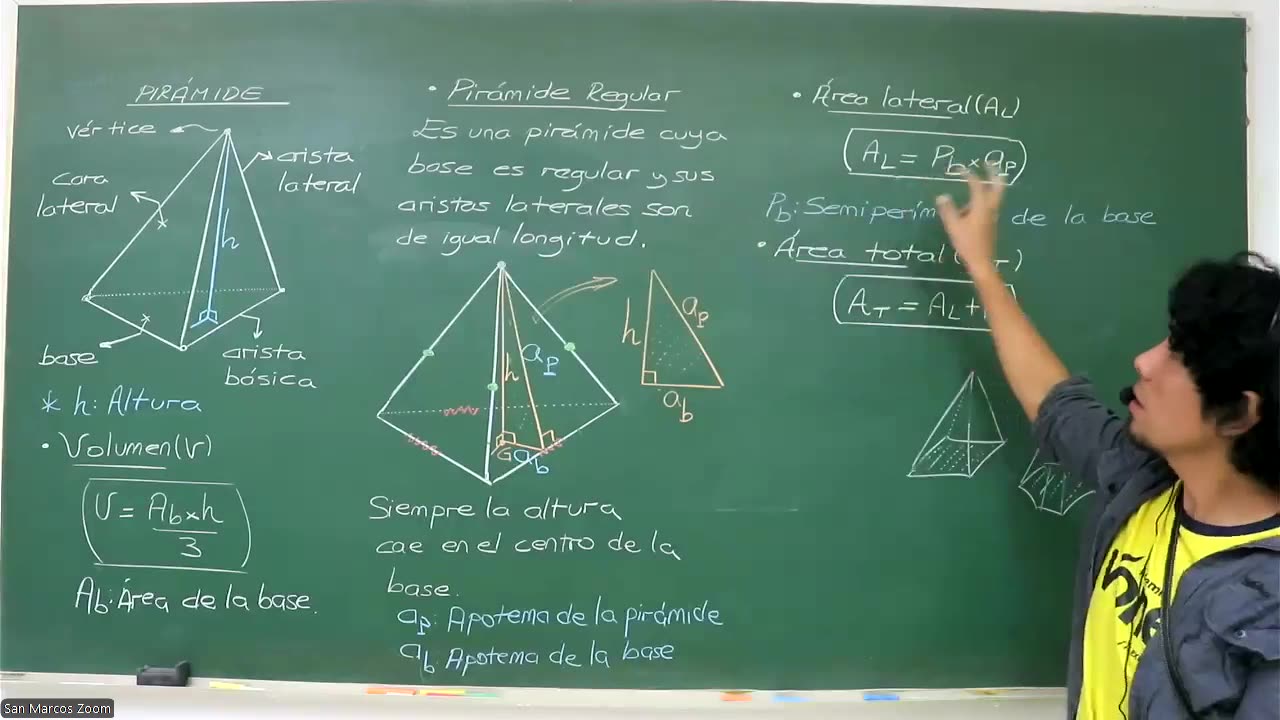 PIRÁMIDE
vértice
arista
lateral
cara
lateral
h
base
arista
básica
* h: Altura
• Volumen(V)
V = Ab×h
3
Ab: Área de la base.
• Pirámide Regular
Es una pirámide cuya
base es regular y sus
aristas laterales son
de igual longitud.
h
ap
G
ab
h
ap
ab
Siempre la altura
cae en el centro de la
base.
ap: Apotema de la pirámide
ab Apotema de la base
• Área lateral (AL)
AL = Pb × ap
Pb: Semiperím de la base
• Área total (
AT = AL +
San Marcos Zoom